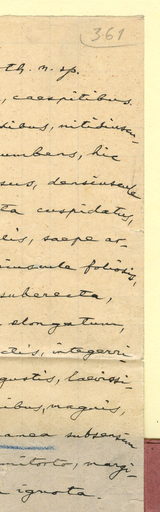 361
th. n. sp.
, caespitibus
dibus, nitidiuscu-
umbens, hic
sus, densiuscule
ta cuspidatus,
lis, saepe ar-
iuscule foliosis,
suberecta,
elongatum,
ctis, integerri
gustis, laevissi-
ibus, magnis,
anea subsensim
ontorto, margi-
ignota.